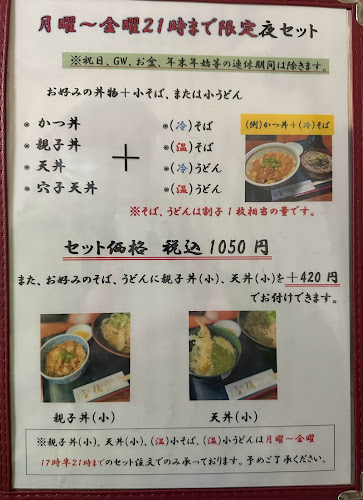 月曜～金曜21時まで限定夜セット
※祝日、GW、お盆、年末年始等の連休期間は除きます。
お好みの丼物＋小そば、または小うどん
かつ丼
親子丼
天丼
穴子天丼
＋
(冷)そば
(温)そば
(冷)うどん
(温)うどん
(例)かつ丼＋(冷)そば
※そば、うどんは割子1枚相当の量です。
セット価格 税込1050円
また、お好みのそば、うどんに親子丼(小)、天丼(小)を＋420円
でお付けできます。
親子丼(小)
天丼(小)
※親子丼(小)、天丼(小)、(温)小そば、(温)小うどんは月曜～金曜
17時半21時までのセット注文でのみ承っております。予めご了承ください。